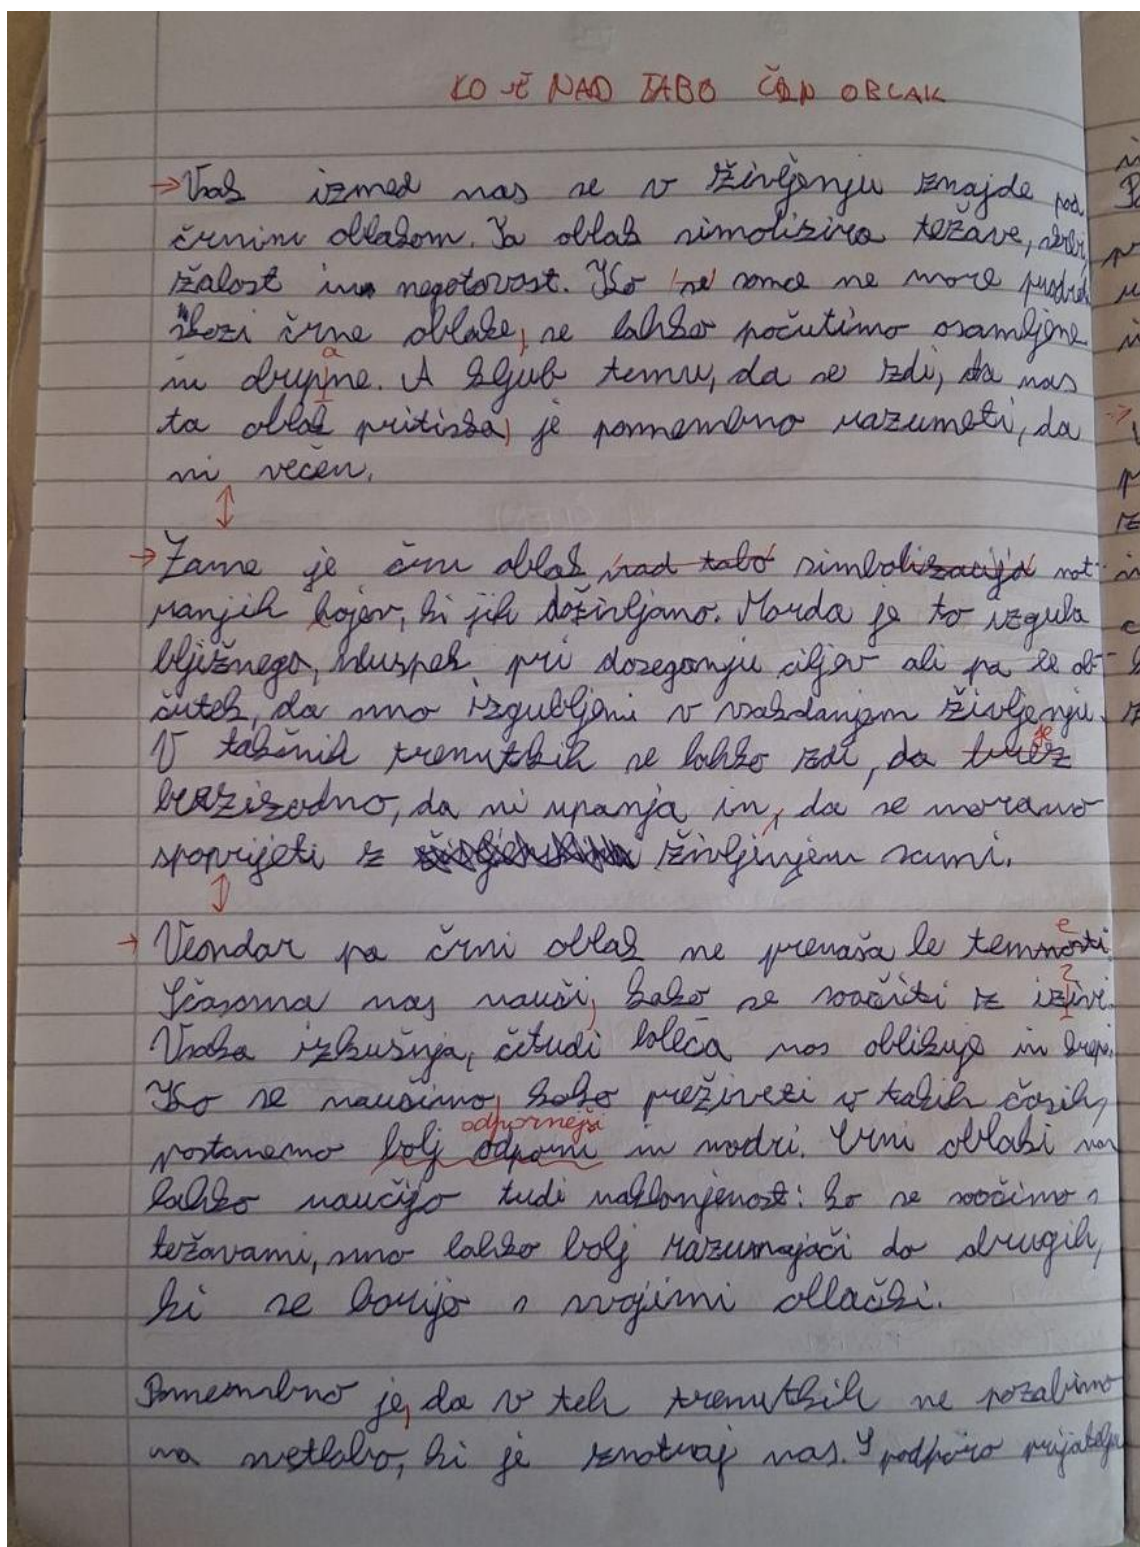 KO JE NAD TABO ČRN OBLAK
→Vsak izmed nas se v življenju znajde pod
črnim oblakom. Ta oblak simolizira težave, skrbi,
žalost in negotovost. Ko se sonce ne more prodreti
skozi črne oblake, se lahko počutimo osamljene
in drupine. A kljub temu, da se zdi, da nas
ta oblak pritiska, je pomembno razumeti, da
ni večen.
→Zame je črni oblak nad tabo simbolizacija not-
ranjih bojev, ki jih doživljamo. Morda je to izguba
bližnega, neuspeh pri doseganju ciljev ali pa le ob-
čutek, da smo izgubljeni v vsakdanjem življenju.
V takšnih trenutkih se lahko zdi, da je
brezizodno, da ni upanja in, da se moramo
spoprijeti z življenjem sami.
→ Vendar pa črni oblak ne prenaša le temnosti.
Sčasoma nas nauči, kako se soočiti z izivi.
Vsaka izkušnja, četudi boleča nas oblikuje in krepi.
Ko se naučimo, kako preživeti v takih časih,
odpornejši
postanemo bolj odporni in modri. Črni oblaki nas
lahko naučijo tudi naklonjenost: ko se soočimo s
težavami, smo lahko bolj razumajoči do drugih,
ki se borijo s svojimi oblački.
Pomembno je, da v teh trenutkih ne pozabimo
na svetlobo, ki je znotraj nas. S podporo prijateljev